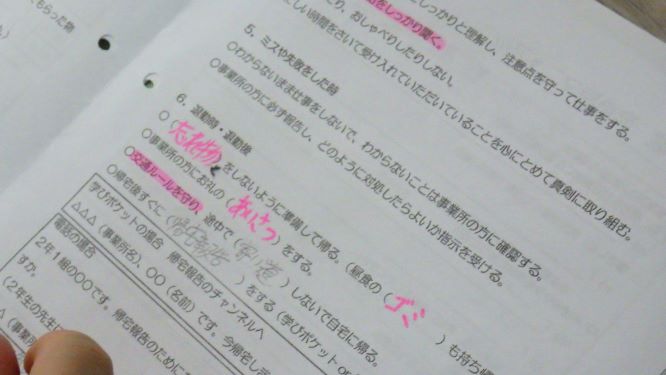 もらった物
をしっかり聞く。
しっかりと理解し、注意点を守って仕事をする。
り、おしゃべりしたりしない。
しい時間をさいて受け入れていただいていることを心にとめて真剣に取り組む。
5. ミスや失敗をした時
○わからないまま仕事をしないで、わからないことは事業所の方に確認する。
○事業所の方に必ず報告し、どのように対処したらよいか指示を受ける。
6. 退勤時・退勤後
○（忘れ物）をしないように準備して帰る。（昼食の（ゴミ）も持ち帰
○事業所の方にお礼の（あいさつ）をする。
○交通ルールを守り、途中で（寄り道）しないで自宅に帰る。
○帰宅後すぐに（帰宅報告）をする（学びポケット or
学びポケットの場合 帰宅報告のチャンネルへ
△△△（事業所名）、○○（名前）です。今帰宅し
電話の場合
2年1組の○○です。帰宅報告のために
すか。
（2年生の先生に
（事業所